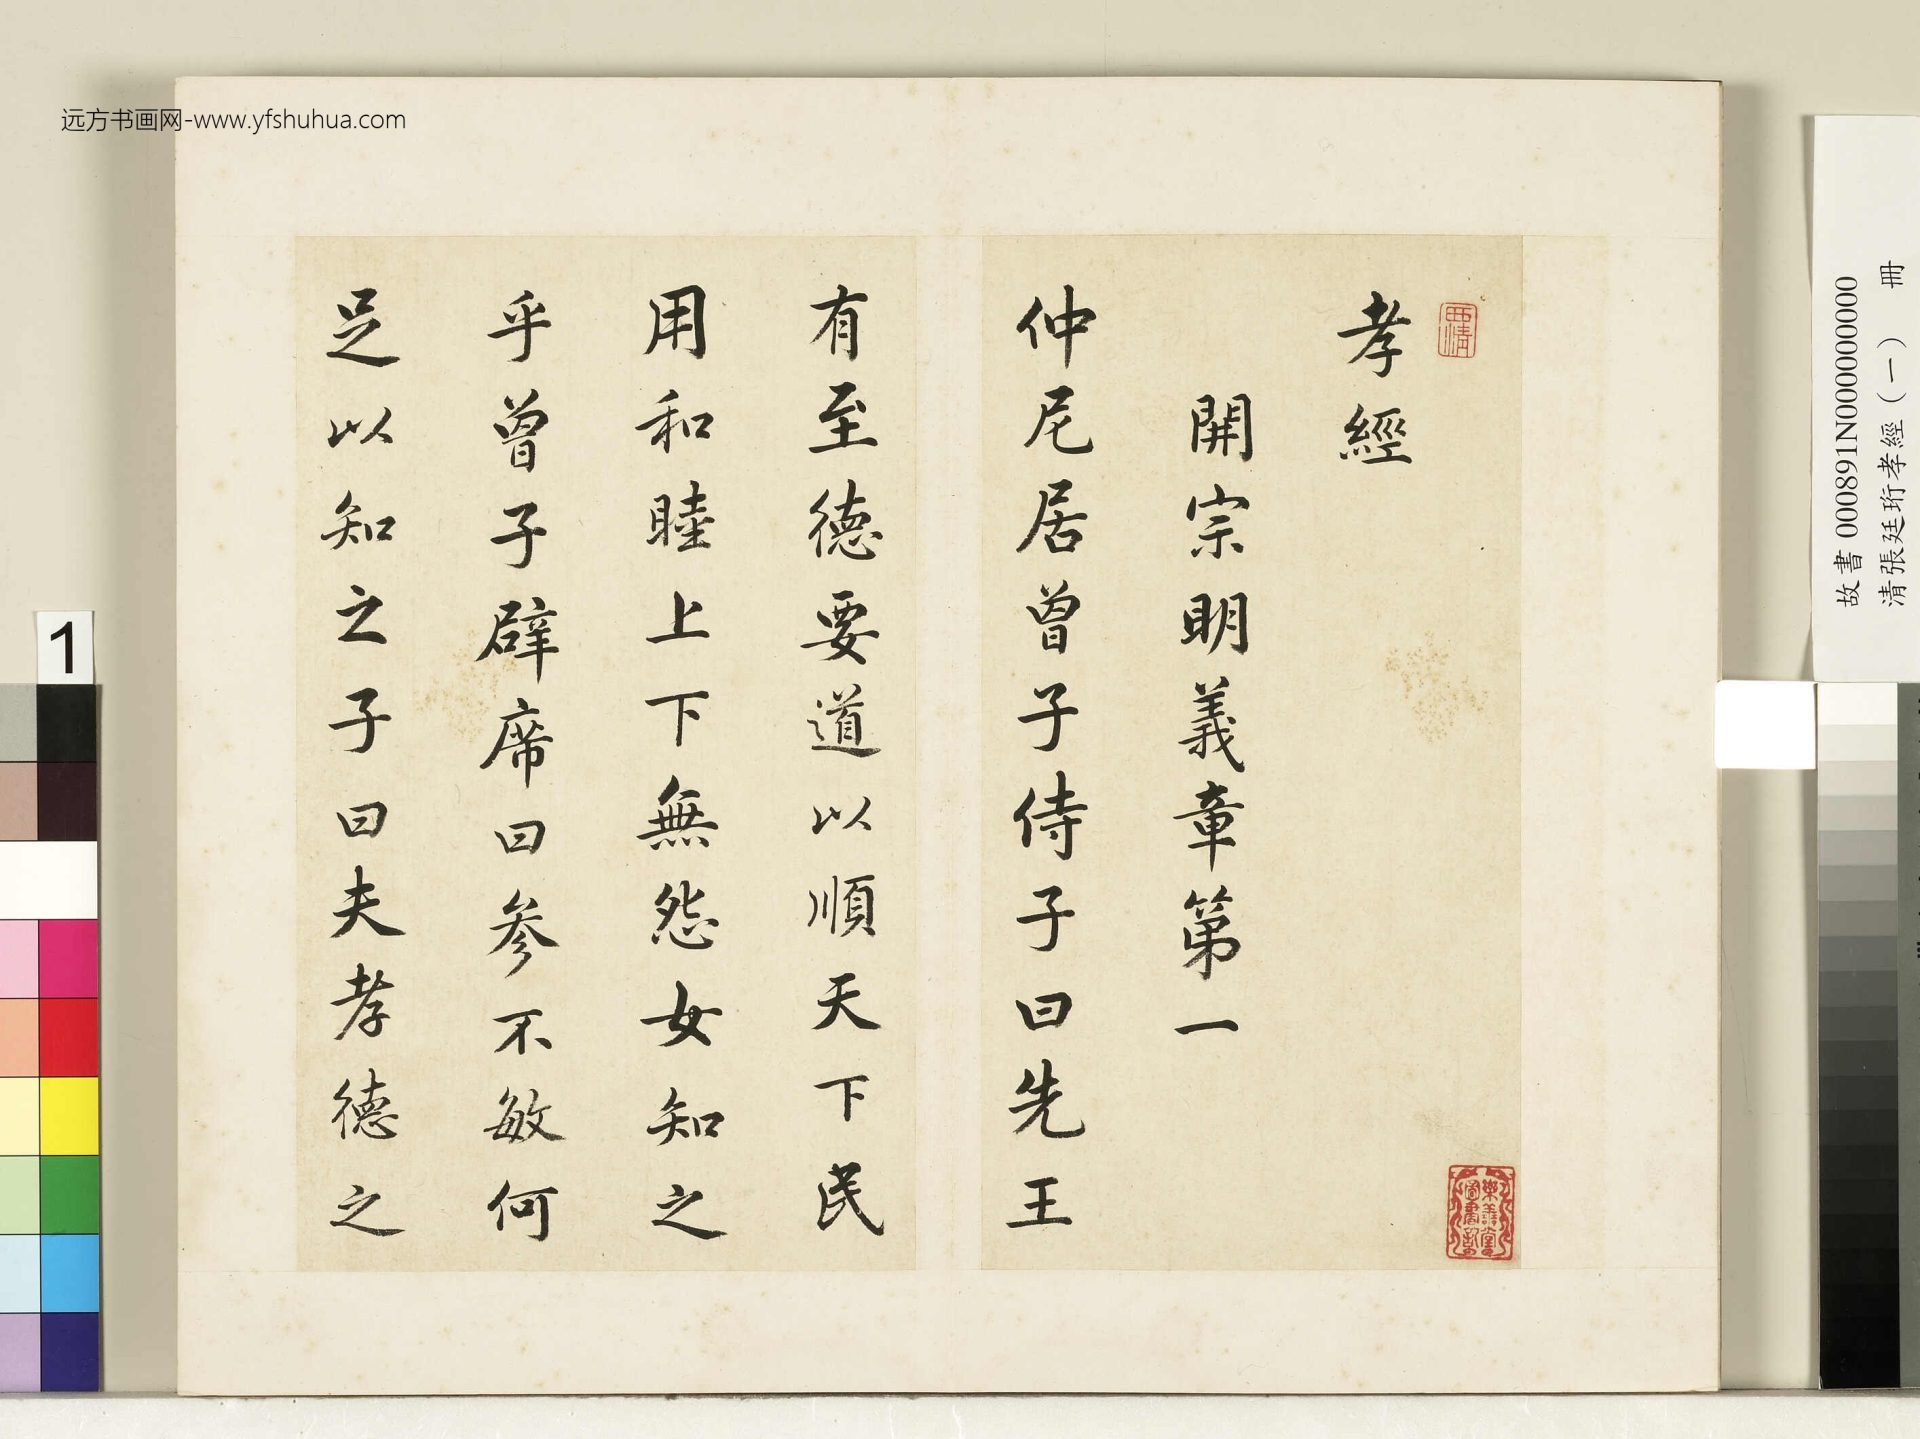 远方书画网-www.yfshuhua.com
孝經
開宗明義章第一
仲尼居曾子侍子曰先王
有至德要道以順天下民
用和睦上下無怨女知之
乎曾子辟席曰參不敏何
足以知之子曰夫孝德之
西清
樂善堂圖書記
故書 000891N000000000
清張廷珩孝經（一） 冊
1